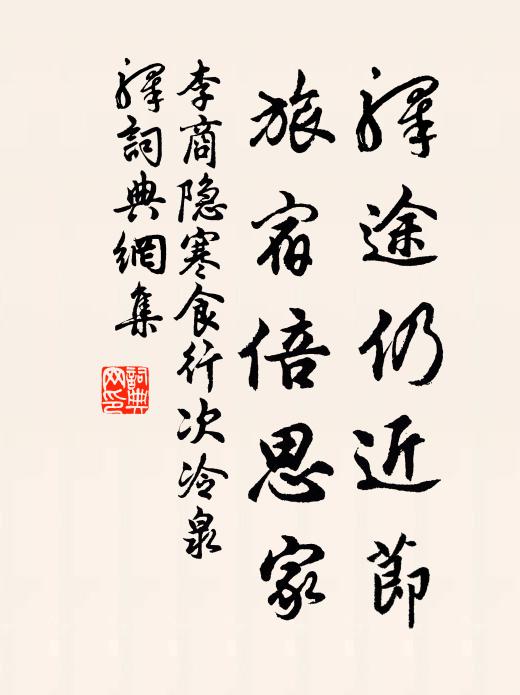 驛途仍近節
旅宿倍思家
李商隐寒食行次冷泉
驛詞典網集
詞典網印